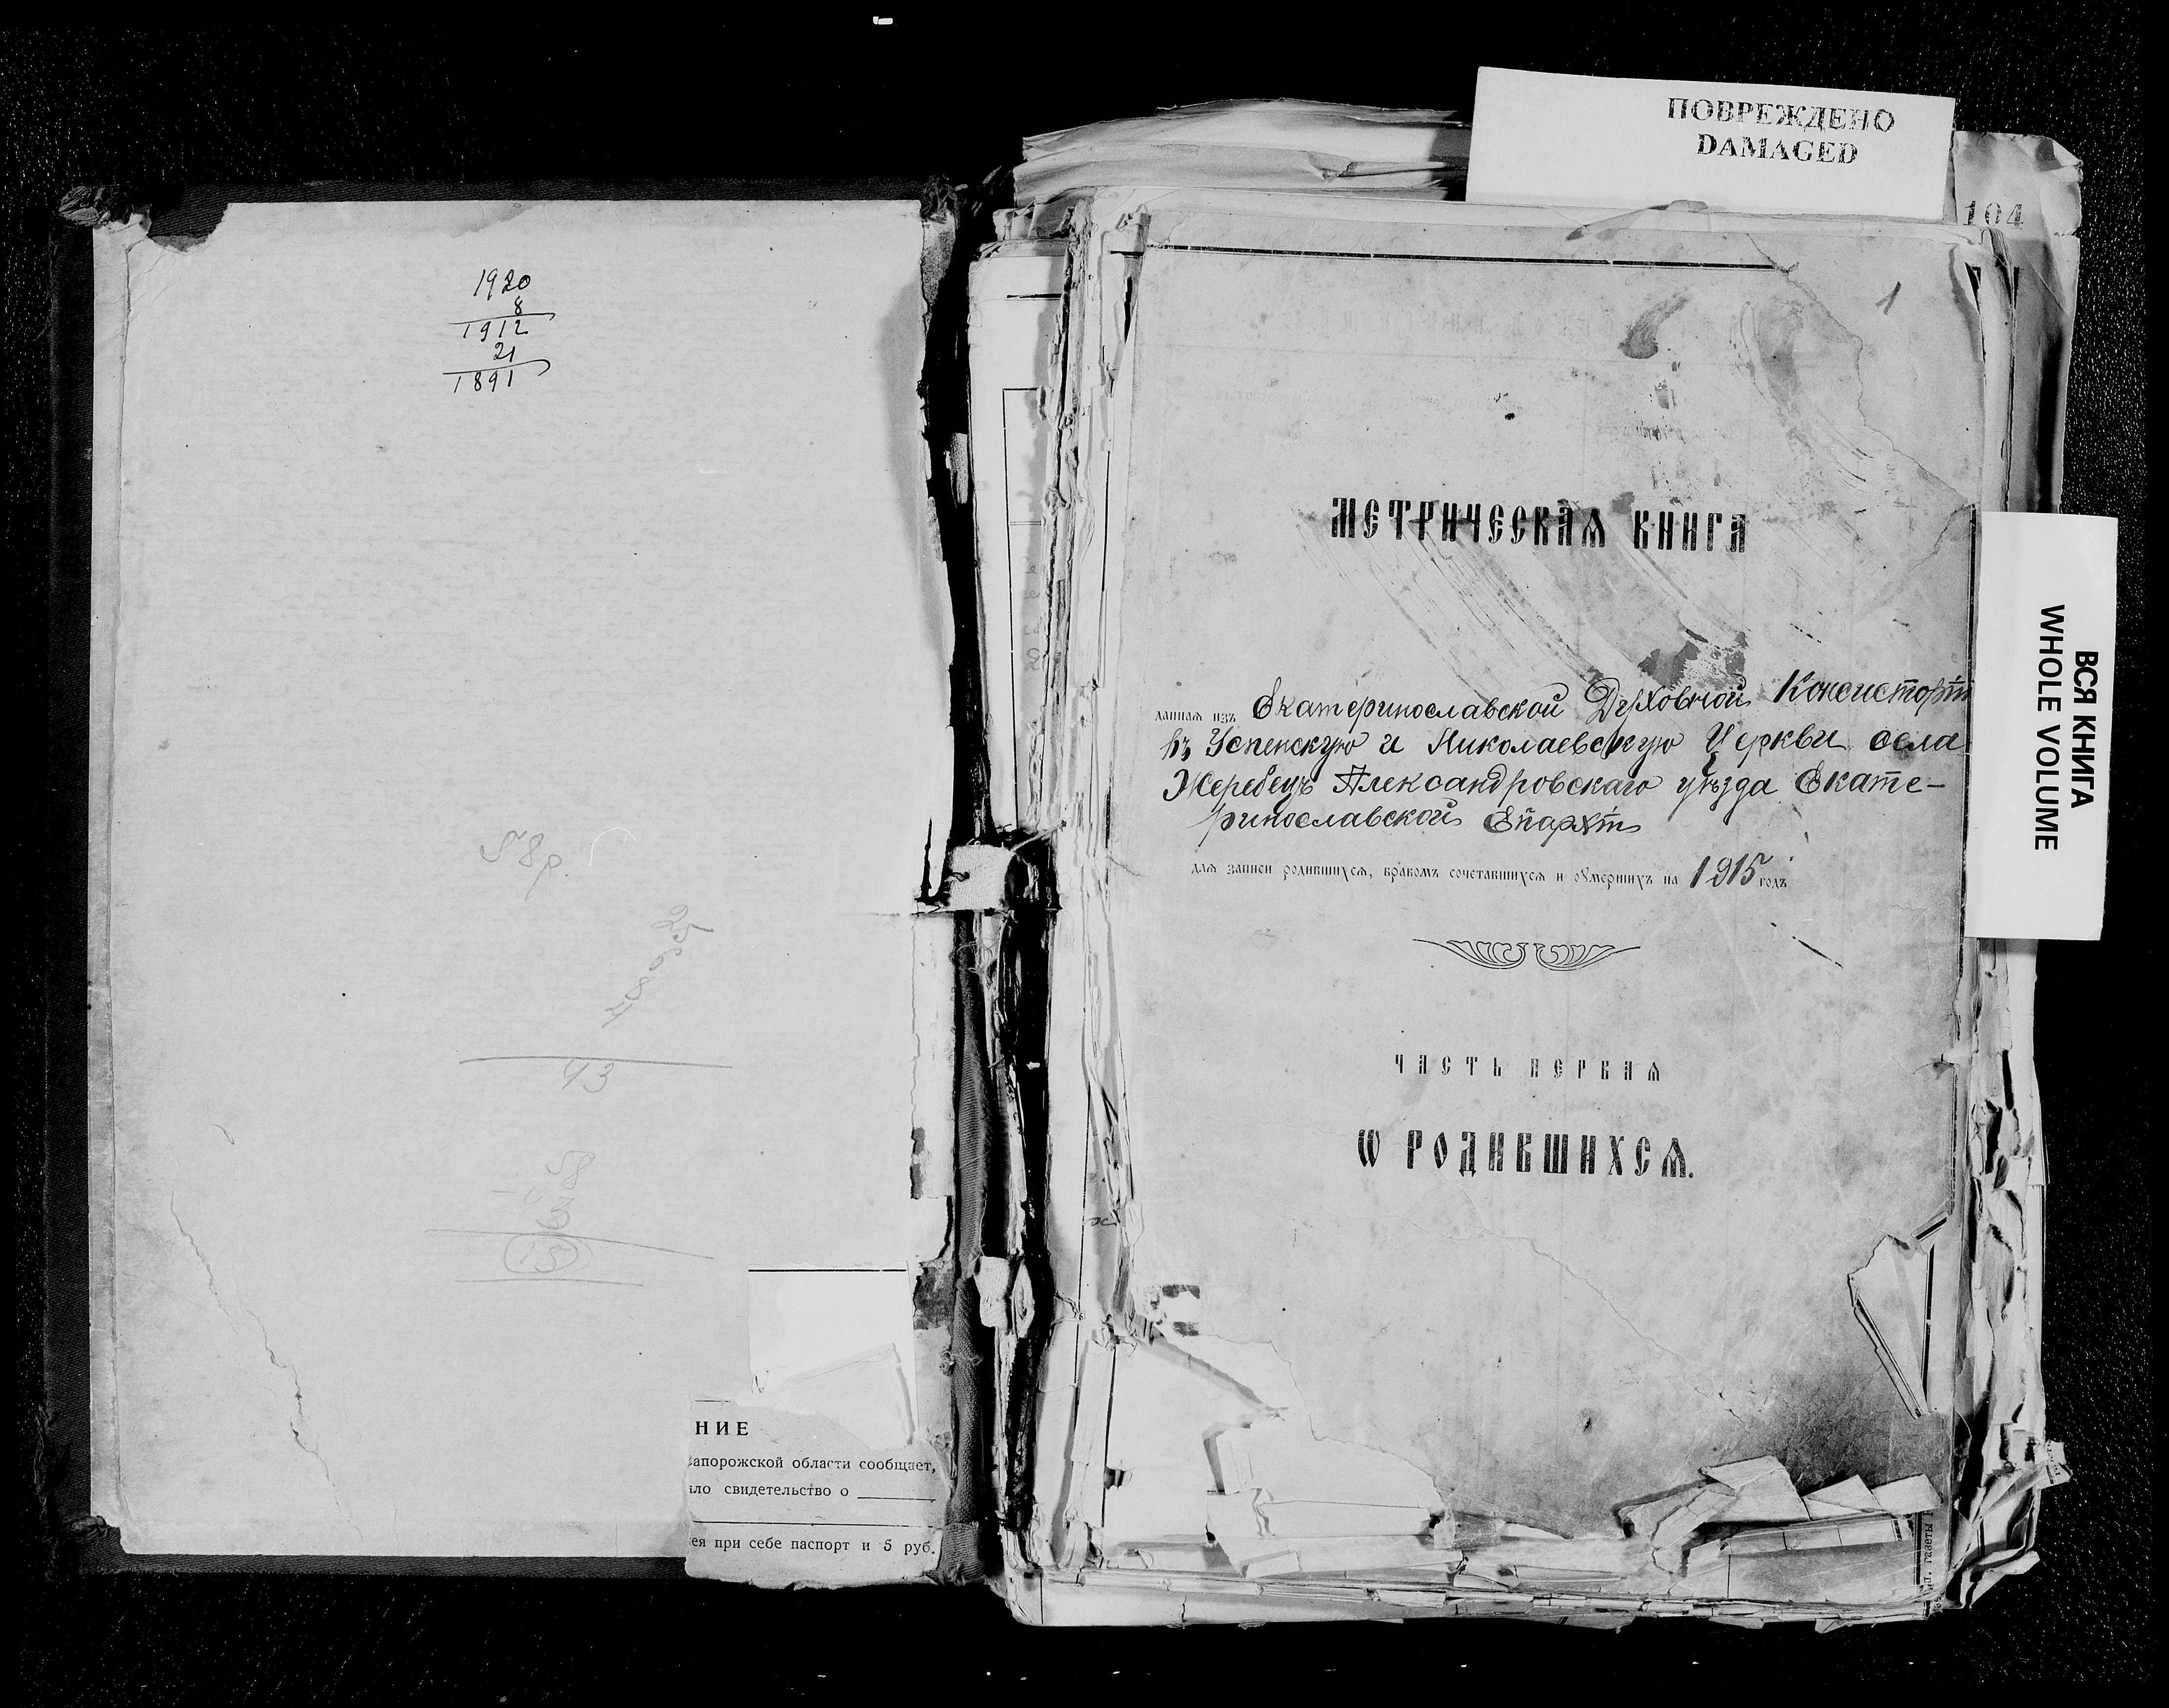 1920
8
1912
21
1891
58р.
93
58
15
НИЕ
апорожской области сообщает,
ло свидетельство о
ея при себе паспорт и 5 руб.
ПОВРЕЖДЕНО
DAMAGED
104
1
МЕТРИЧЕСКАѦ КНИГА
даннаѧ изъ Екатеринославской Духовной Консисторіи
въ Успенскую и Николаевскую Церкви села
Жеребецъ Александровскаго уѣзда Екате-
ринославской Епархіи
длѧ записи родившихсѧ, бракомъ сочетавшихсѧ и оумершихъ на 1915 годъ
ЧАСТЬ ПЕРВАѦ
Ѡ РОДИВШИХСѦ.
ВСЯ КНИГА
WHOLE VOLUME
газеты